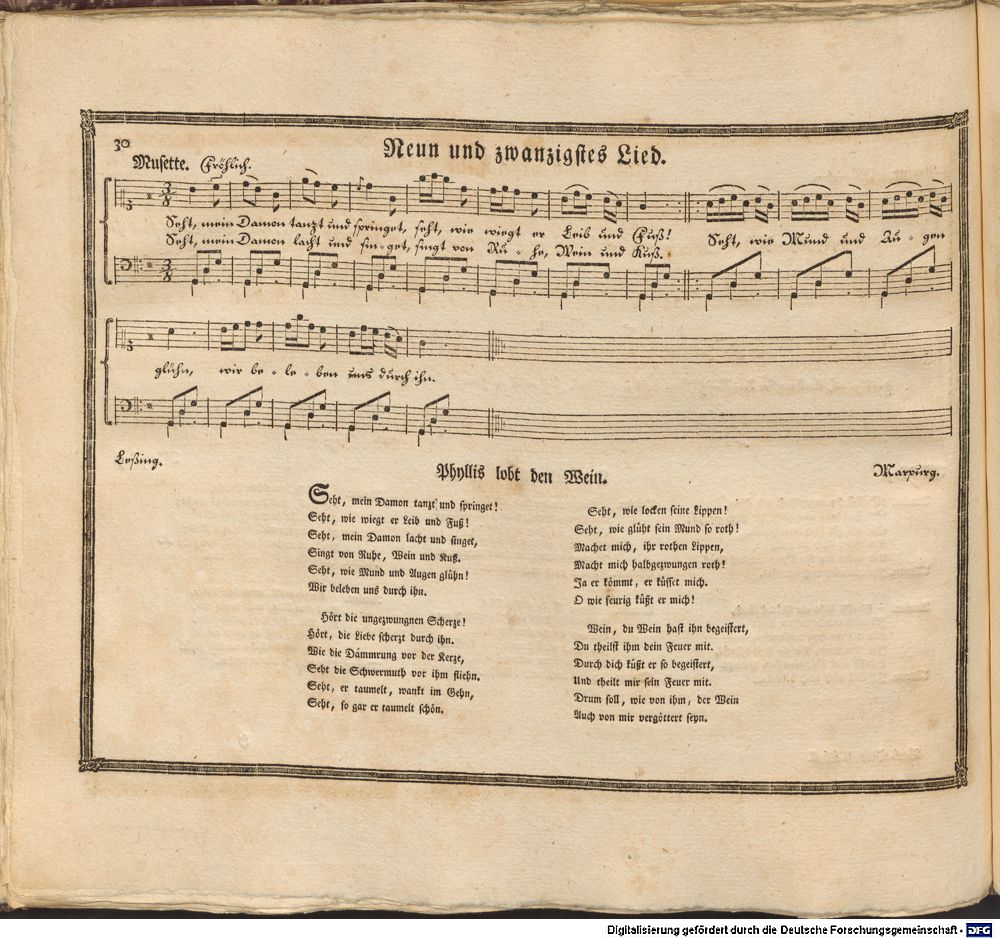 30
Neun und zwanzigstes Lied.
Musette. Fröhlich.
3/8
Seht, mein Damon tanzt und springet, seht, wie wiegt er Leib und Fuß! Seht, wie Mund und Au-gen
Seht, mein Damon lacht und sin-get, singt von Ru-he, Wein und Kuß.
3/8
glühn, wir be-le-ben uns durch ihn.
Leßing.
Phyllis lobt den Wein.
Marpurg.
Seht, mein Damon tanzt und springet!
Seht, wie wiegt er Leib und Fuß!
Seht, mein Damon lacht und singet,
Singt von Ruhe, Wein und Kuß.
Seht, wie Mund und Augen glühn!
Wir beleben uns durch ihn.
Hört die ungezwungnen Scherze!
Hört, die Liebe scherzt durch ihn.
Wie die Dämmrung vor der Kerze,
Seht die Schwermuth vor ihm fliehn.
Seht, er taumelt, wankt im Gehn,
Seht, so gar er taumelt schön.
Seht, wie locken seine Lippen!
Seht, wie glüht sein Mund so roth!
Machet mich, ihr rothen Lippen,
Macht mich halbgezwungen roth!
Ja er kömmt, er küsset mich.
O wie feurig küßt er mich!
Wein, du Wein hast ihn begeistert,
Du theilst ihm dein Feuer mit.
Durch dich küßt er so begeistert,
Und theilt mir sein Feuer mit.
Drum soll, wie von ihm, der Wein
Auch von mir vergöttert seyn.
Digitalisierung gefördert durch die Deutsche Forschungsgemeinschaft - DFG